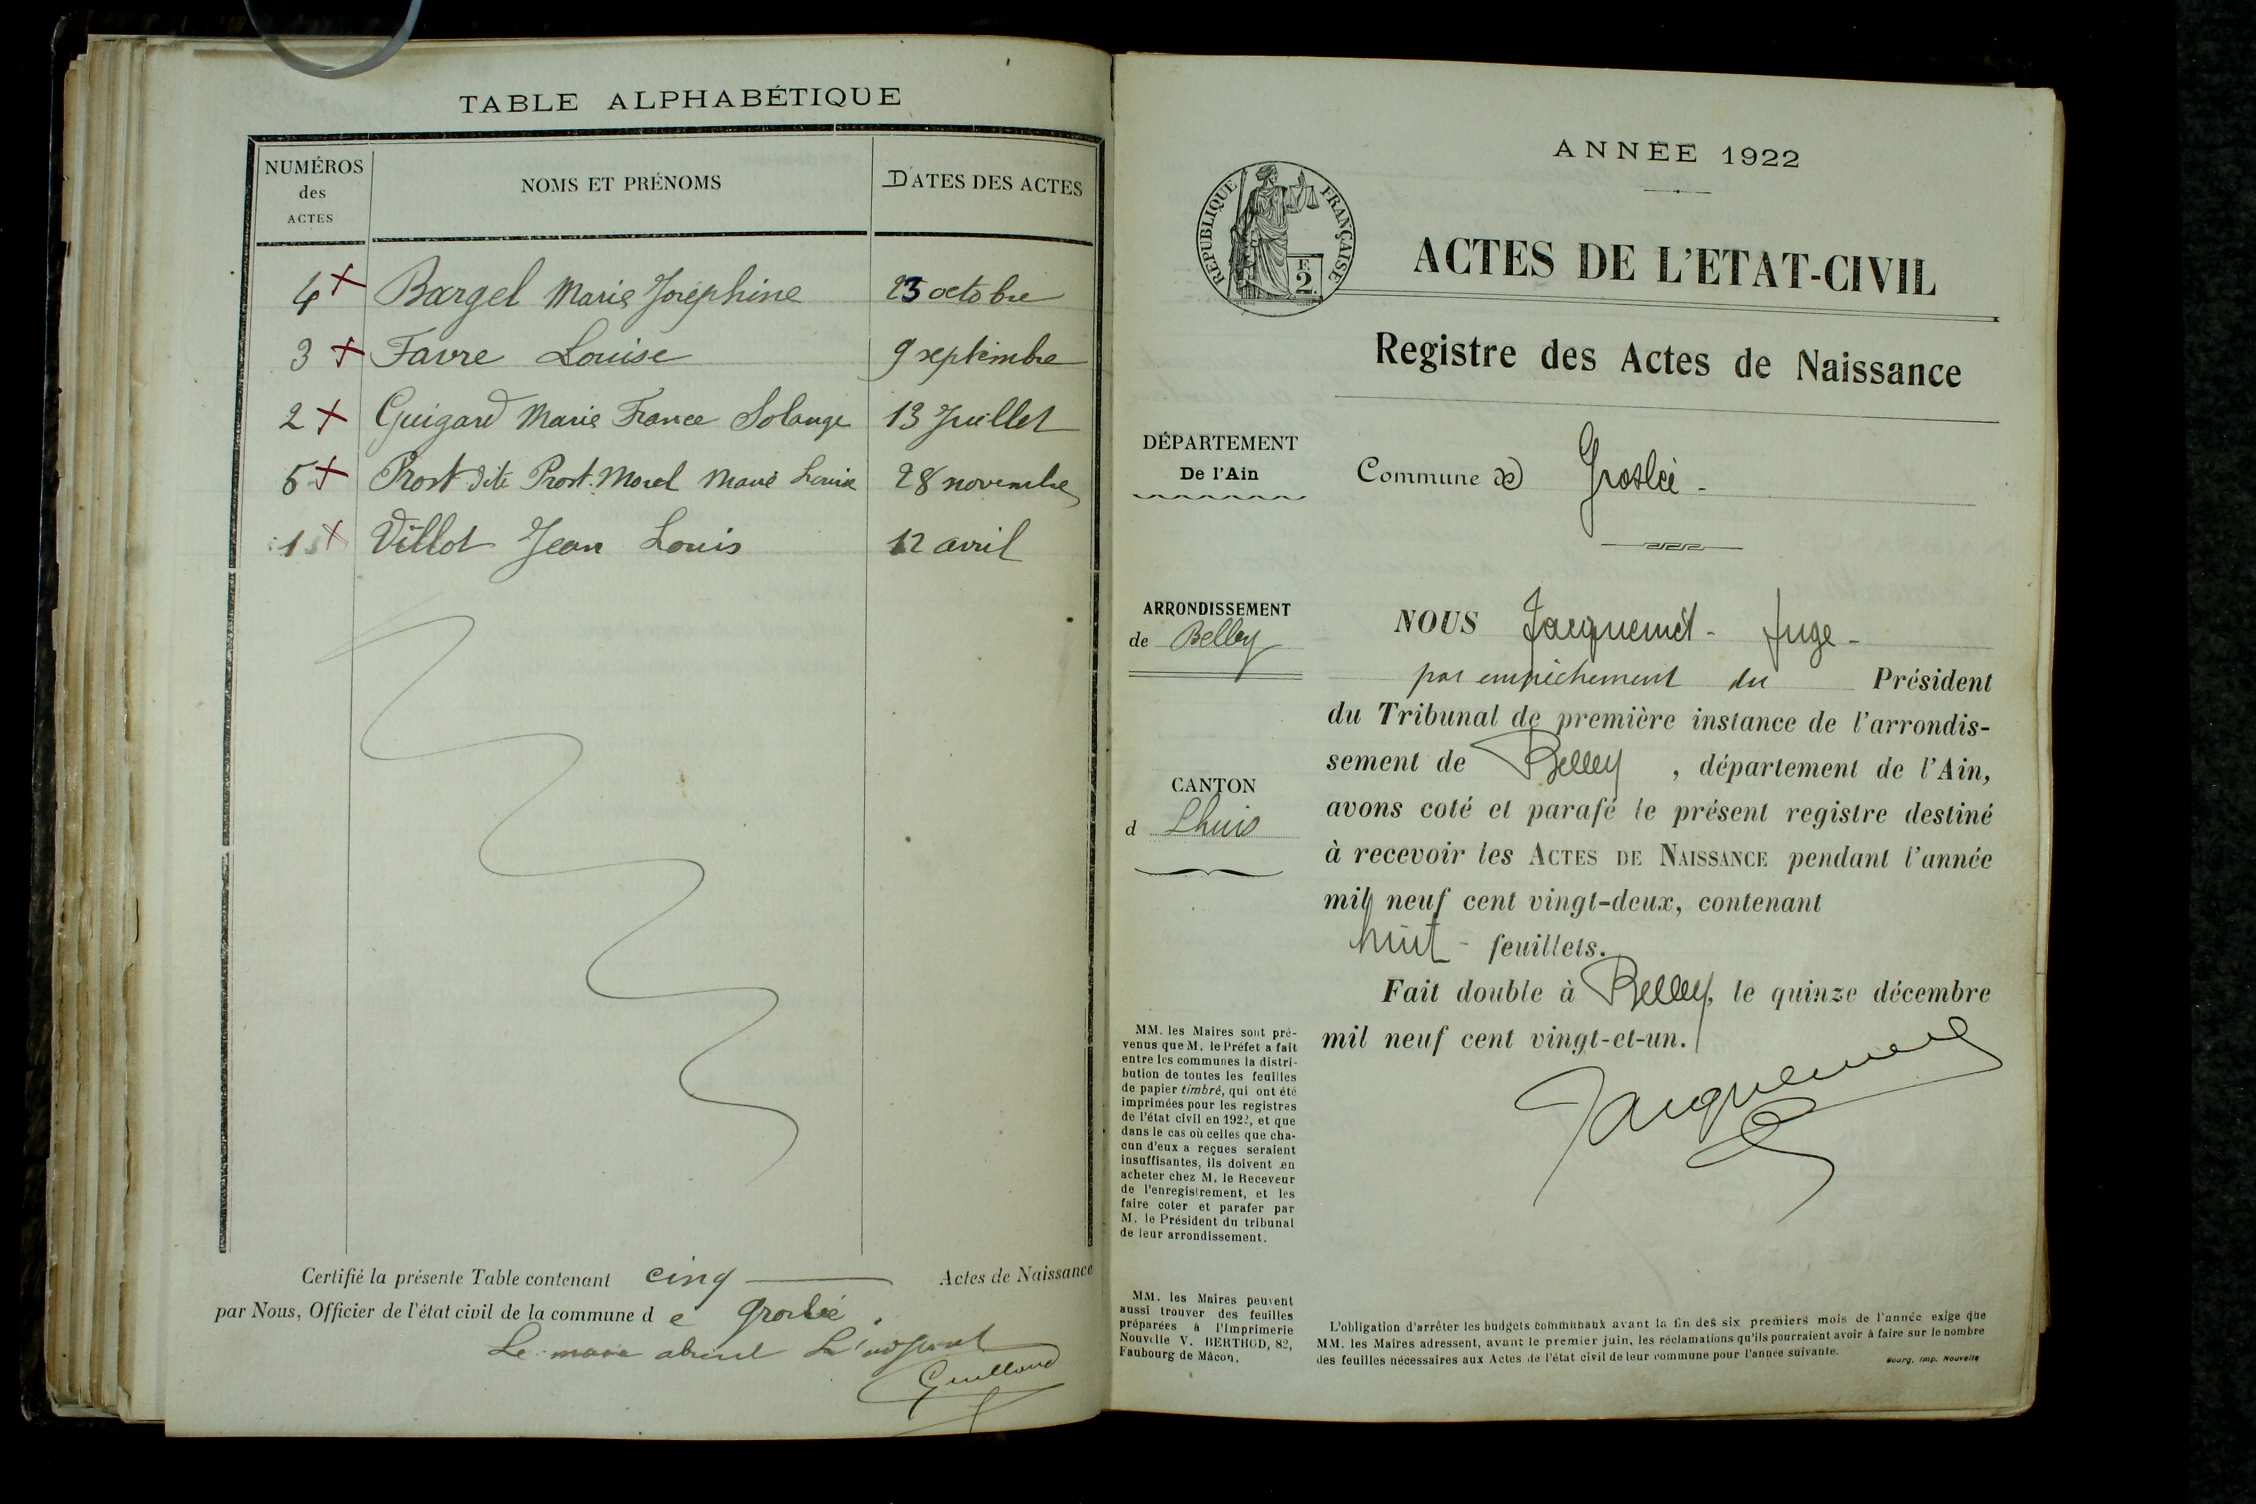 TABLE ALPHABÉTIQUE
NUMÉROS
des
ACTES
NOMS ET PRÉNOMS
DATES DES ACTES
4 Bargel Marie Joséphine 23 octobre
3 Favre Louise 9 septembre
2 Guigard Marie France Solange 13 Juillet
5 Prost dite Prost-Morel Marie Louise 28 novembre
1 Villot Jean Louis 12 avril
Certifié la présente Table contenant cinq Actes de Naissance
par Nous, Officier de l'état civil de la commune de Groslée.
Le maire absent L'adjoint
Guilland
ANNÉE 1922
RÉPUBLIQUE FRANÇAISE
F.
2.
ACTES DE L'ETAT-CIVIL
Registre des Actes de Naissance
DÉPARTEMENT
De l'Ain
Commune de Groslée -
ARRONDISSEMENT
de Belley
CANTON
d Lhuis
NOUS Jacquemet - Juge -
par empêchement du Président
du Tribunal de première instance de l'arrondis-
sement de Belley, département de l'Ain,
avons coté et parafé le présent registre destiné
à recevoir les ACTES DE NAISSANCE pendant l'année
mil neuf cent vingt-deux, contenant
huit - feuillets.
Fait double à Belley, le quinze décembre
mil neuf cent vingt-et-un.
Jacquemet
MM. les Maires sont pré-
venus que M. le Préfet a fait
entre les communes la distri-
bution de toutes les feuilles
de papier timbré, qui ont été
imprimées pour les registres
de l'état civil en 1922, et que
dans le cas où celles que cha-
cun d'eux a reçues seraient
insuffisantes, ils doivent en
acheter chez M. le Receveur
de l'enregistrement, et les
faire coter et parafer par
M. le Président du tribunal
de leur arrondissement.
MM. les Maires peuvent
aussi trouver des feuilles
préparées à l'Imprimerie
Nouvelle V. BERTHOD, 82,
Faubourg de Mâcon.
L'obligation d'arrêter les budgets communaux avant la fin des six premiers mois de l'année exige que
MM. les Maires adressent, avant le premier juin, les réclamations qu'ils pourraient avoir à faire sur le nombre
des feuilles nécessaires aux Actes de l'état civil de leur commune pour l'année suivante.
Bourg, Imp. Nouvelle